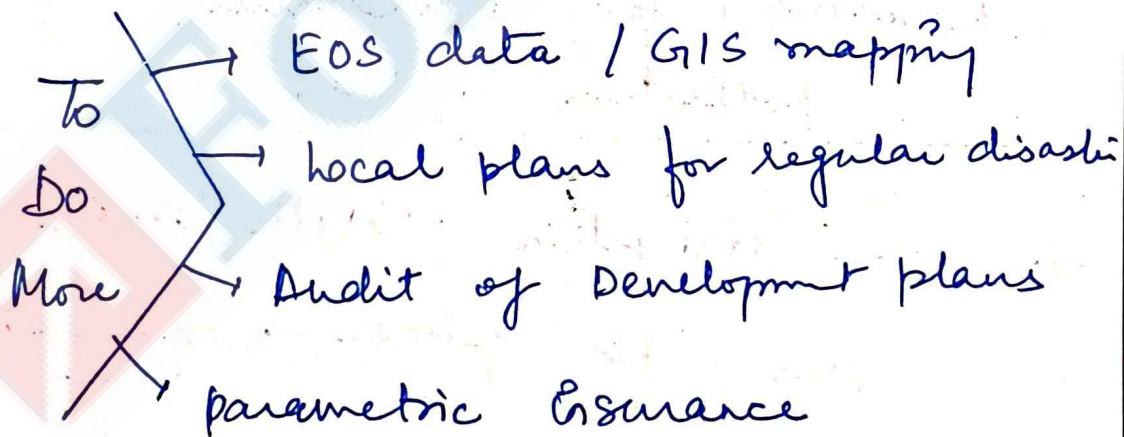 To
Do
More
EOS data / GIS mapping
Local plans for regular disaste
Audit of Developmnt plans
parametric insurance